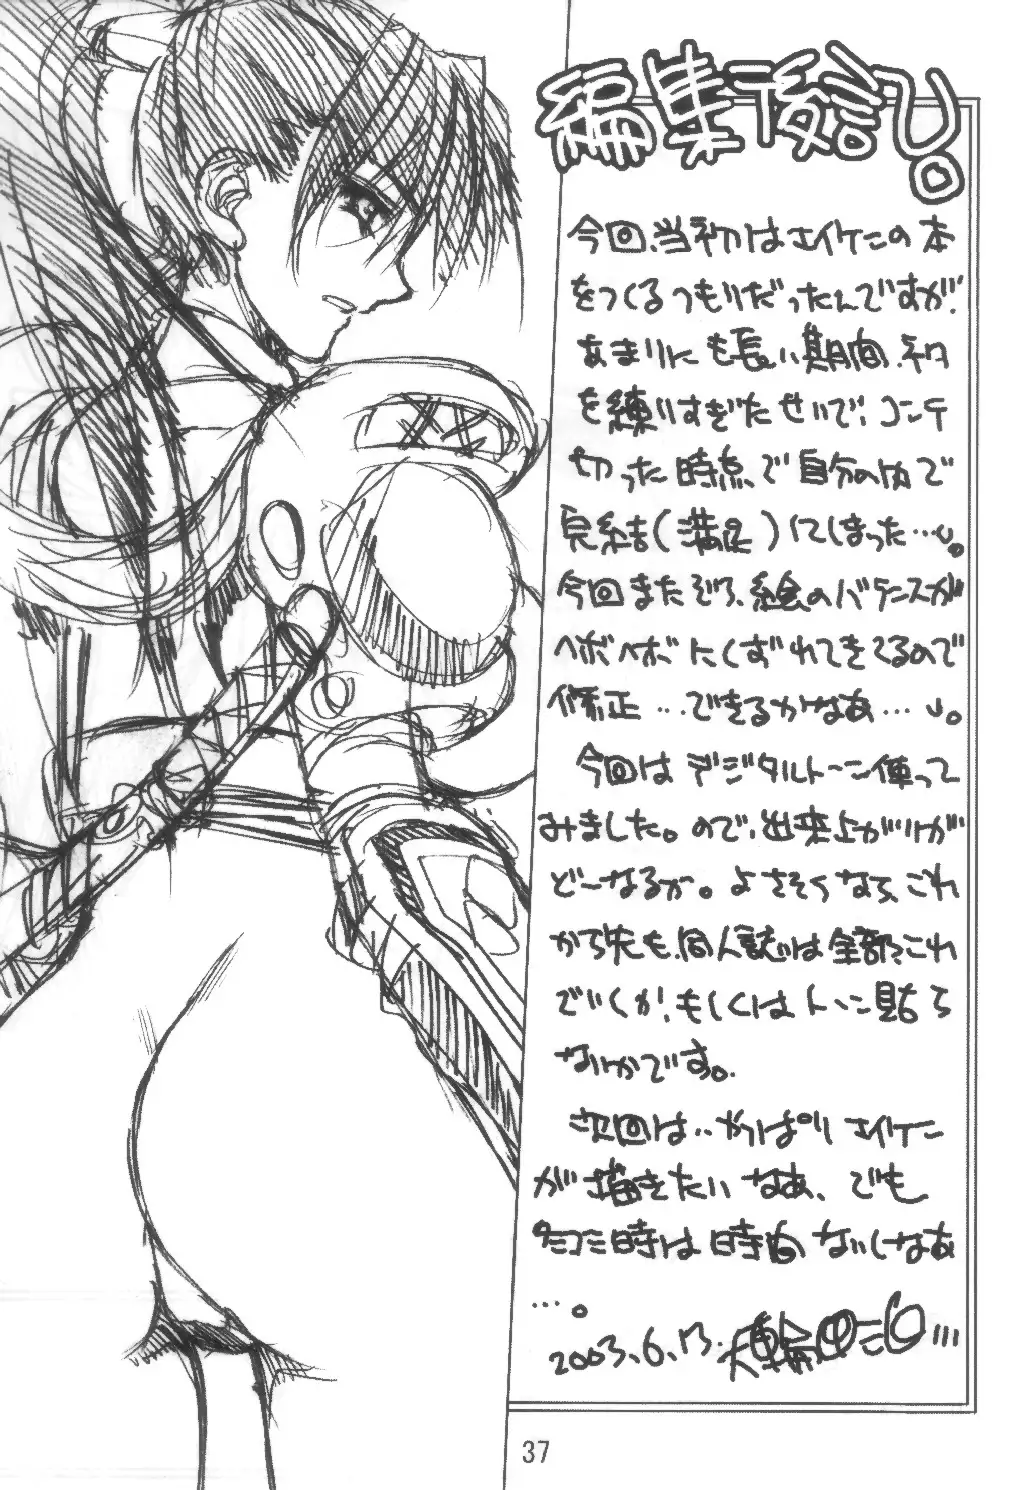 編集後記。
今回、当初はエイケンの本
をつくるつもりだったんですが、
あまりにも長い期間、ネタ
を練りすぎたせいで、コンテ
切った時点で自分の内で
完結(満足)してしまった…。
今回またぞろ、絵のバランスが
ヘボヘボにくずれてきてるので
修正…できるかなあ…。
今回はデジタルトーン使って
みました。ので、出来上がりが
どーなるか。よさそうなら、これ
から先も、同人誌は全部これ
でいくか、もしくはトーン貼ら
ないかです。
次回は‥やっぱりエイケン
が描きたいなあ、でも
時は時間ないしなあ
…。
2003.6.13.
37